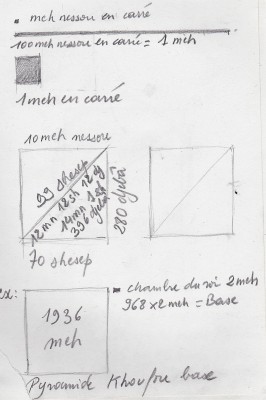 . mch nessou en carré
100 mch nessou en carré = 1 mch
1 mch en carré
10 mch nessou
99 shesep
12 mn 12 sh 12 dj
14 mn 1 sh
396 djebâ
280 djebâ
70 shesep
ex:
1936
mch
chambre du roi 2 mch
968 x 2 mch = Base
Pyramide Khoufou base